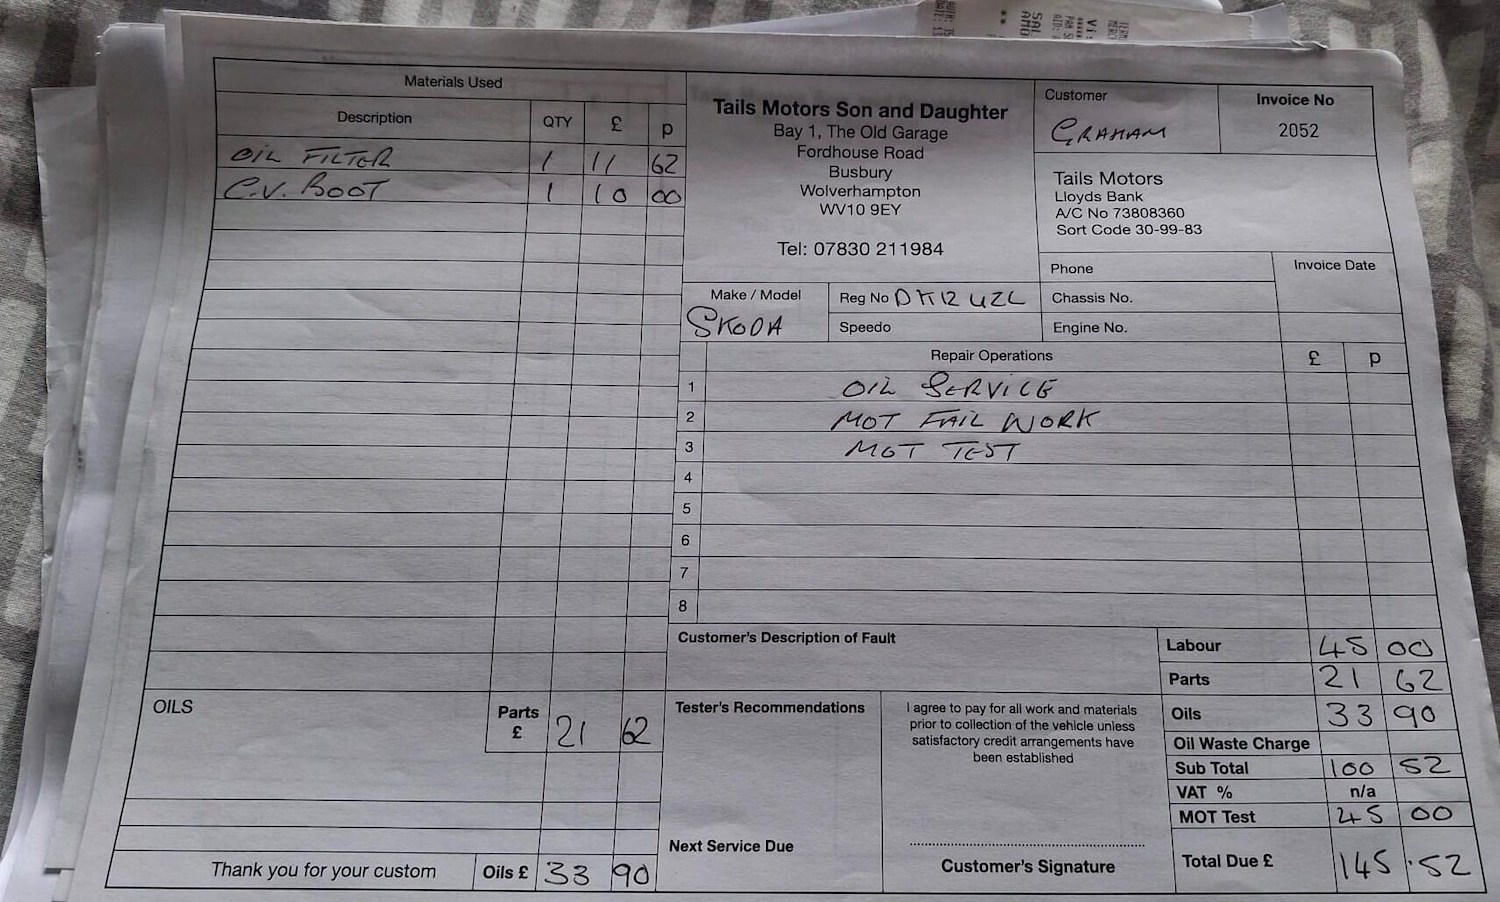 Materials Used
Description QTY £ p
OIL FILTER 1 11 62
C.V. BOOT 1 10 00
OILS
Parts £ 21 62
Thank you for your custom
Oils £ 33 90
Tails Motors Son and Daughter
Bay 1, The Old Garage
Fordhouse Road
Busbury
Wolverhampton
WV10 9EY
Tel: 07830 211984
Customer
GRAHAM
Invoice No
2052
Tails Motors
Lloyds Bank
A/C No 73808360
Sort Code 30-99-83
Phone
Invoice Date
Make / Model
SKODA
Reg No DK12 UZL
Speedo
Chassis No.
Engine No.
Repair Operations £ p
1 OIL SERVICE
2 MOT FAIL WORK
3 MOT TEST
4
5
6
7
8
Customer's Description of Fault
Tester's Recommendations
Next Service Due
I agree to pay for all work and materials
prior to collection of the vehicle unless
satisfactory credit arrangements have
been established
Customer's Signature
Labour 45 00
Parts 21 62
Oils 33 90
Oil Waste Charge
Sub Total 100 52
VAT % n/a
MOT Test 45 00
Total Due £ 145.52